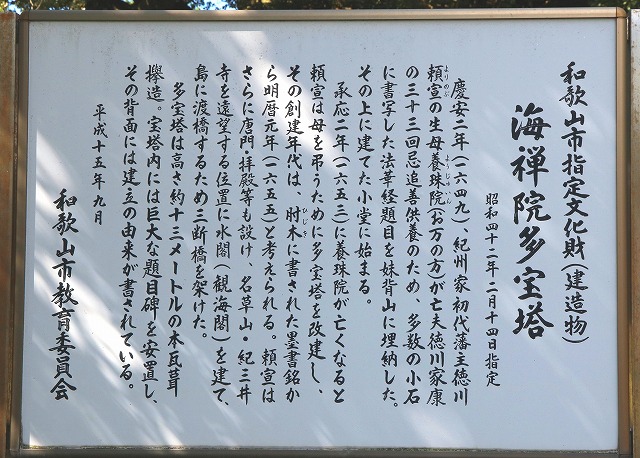 和歌山市指定文化財(建造物)
海禅院多宝塔
昭和四十二年二月十四日指定
慶安二年(一六四九)、紀州家初代藩主徳川
頼宣の生母養珠院(お万の方)が亡夫徳川家康
よりのぶ
ようじゅいん
の三十三回忌追善供養のため、多数の小石
に書写した法華経題目を妹背山に埋納した。
その上に建てた小堂に始まる。
承応二年(一六五三)に養珠院が亡くなると
頼宣は母を弔うために多宝塔を改建し、
その創建年代は、肘木に書された墨書銘か
ひじき
ら明暦元年(一六五五)と考えられる。頼宣は
さらに唐門・拝殿等も設け、名草山・紀三井
寺を遠望する位置に水閣(観海閣)を建て、
島に渡橋するため三断橋を架けた。
多宝塔は高さ約十三メートルの本瓦葺
欅造。宝塔内には巨大な題目碑を安置し、
その背面には建立の由来が書されている。
平成十五年九月
和歌山市教育委員会